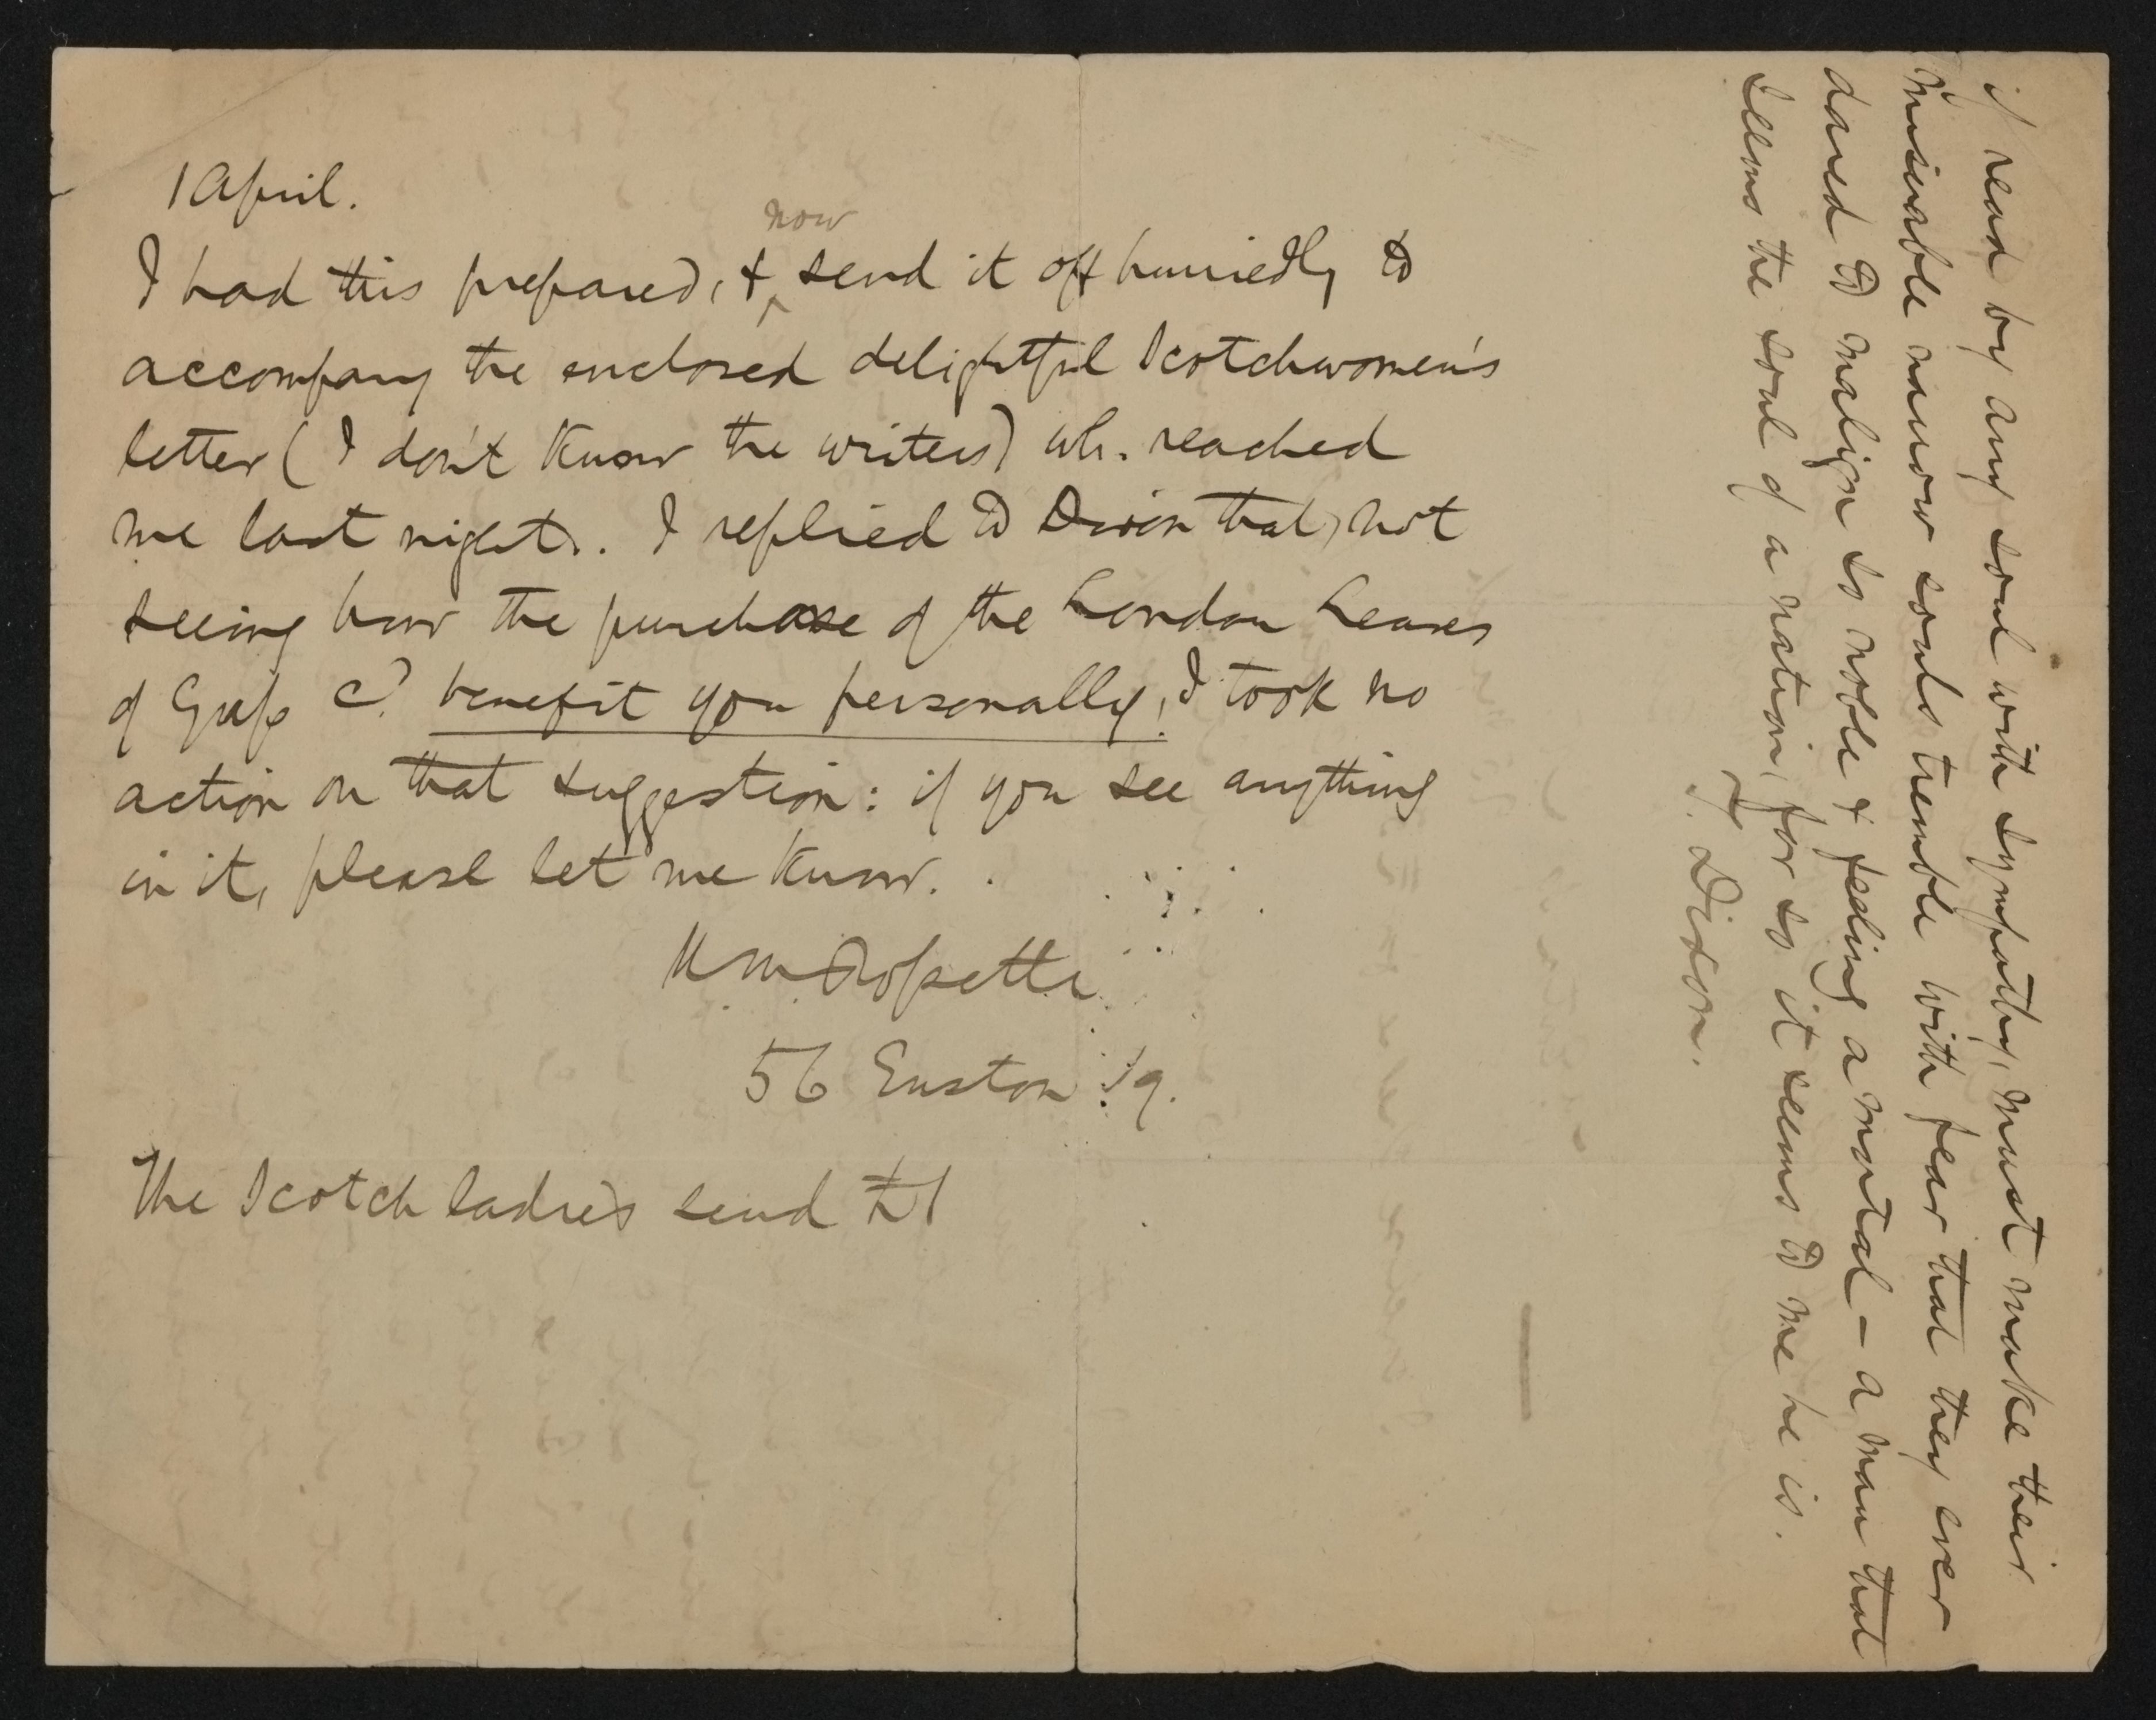 if read by any soul with sympathy, must make their
miserable narrow souls tremble with fear that they ever
dared to malign so noble & feeling a mortal — a man that
seems the soul of a nation, for so it seems to me he is.
T. Dixon.
1 April.
I had this prepared, & now send it off hurriedly to
accompany the enclosed delightful Scotchwomen's
letter (I don't know the writers) wh. reached
me last night. I replied to Dixon that, not
seeing how the purchase of the London Leaves
of Grass cd. benefit you personally, I took no
action on that suggestion: if you see anything
in it, please let me know.
W M Rossetti
56 Euston Sq.
The Scotch ladies send £1